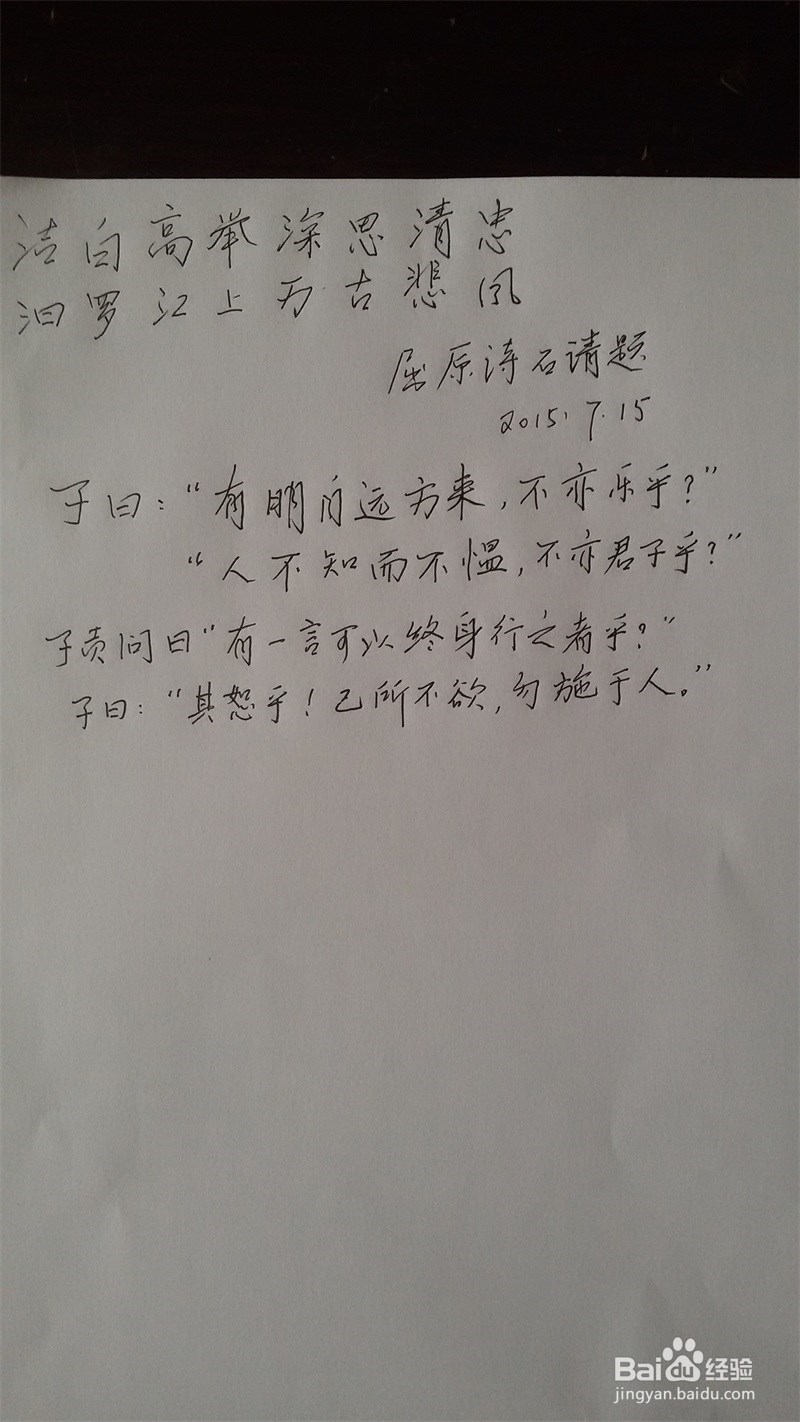 洁白高举深思清忠
汩罗江上万古悲风
屈原涛石请题
2015.7.15
子曰：“有朋自远方来，不亦乐乎？”
“人不知而不愠，不亦君子乎？”
子贡问曰“有一言可以终身行之者乎？”
子曰：“其恕乎！己所不欲，勿施于人。”
Baidu经验
jingyan.baidu.com